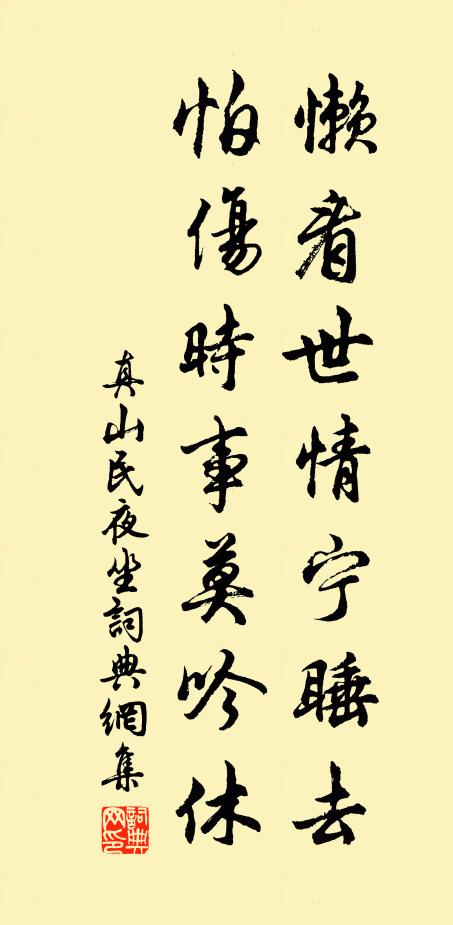 懶看世情宁睡去
怕傷時事莫吟休
真山民夜坐詞典網集
詞典網印